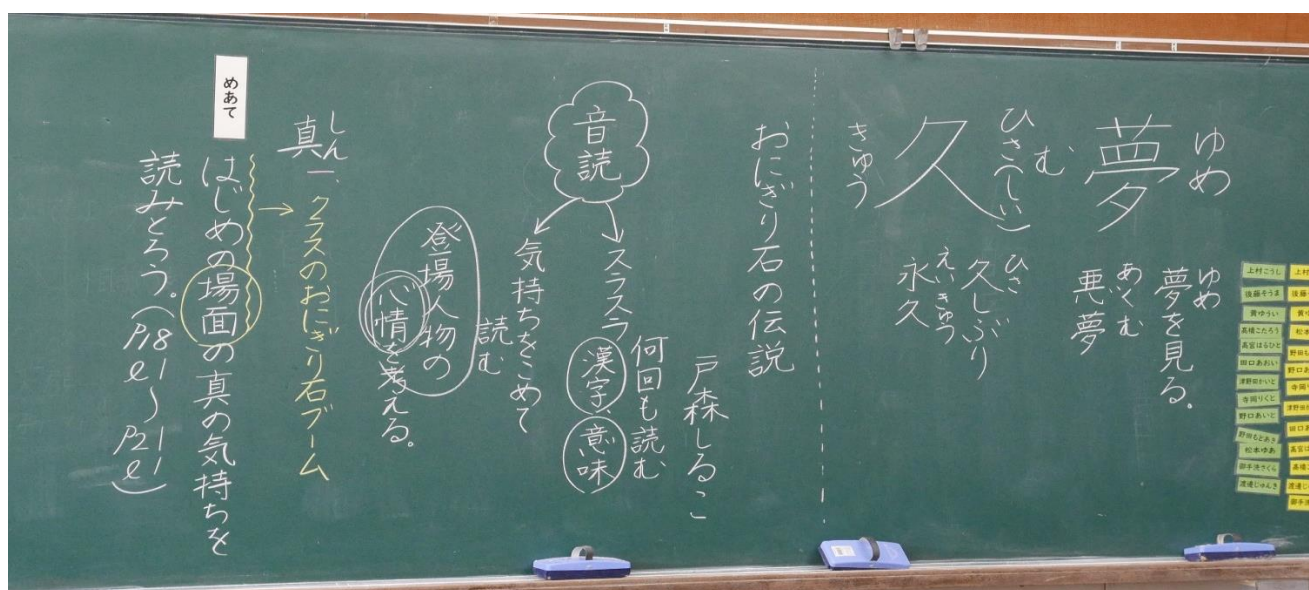 ゆめ
夢
む
ゆめ
夢を見る。
あくむ
悪夢
ひさ(しい)
久
きゅう
ひさ
久しぶり
えいきゅう
永久
おにぎり石の伝説
戸森しるこ
音読
スラスラ
何回も読む
漢字、意味
気持ちをこめて
読む
登場人物の
心情を考える。
しん
真
一、クラスのおにぎり石ブーム
めあて
はじめの場面の真の気持ちを
読みとろう。(P18 l1〜P21 l1)
上村こうし
後藤そうま
黄ゆうい
髙橋こたろう
高宮はらひと
田口あおい
津野田かいと
寺岡りくと
野口あいと
野田もとあき
松本ゆあ
御手洗さくら
渡邊じゅんき